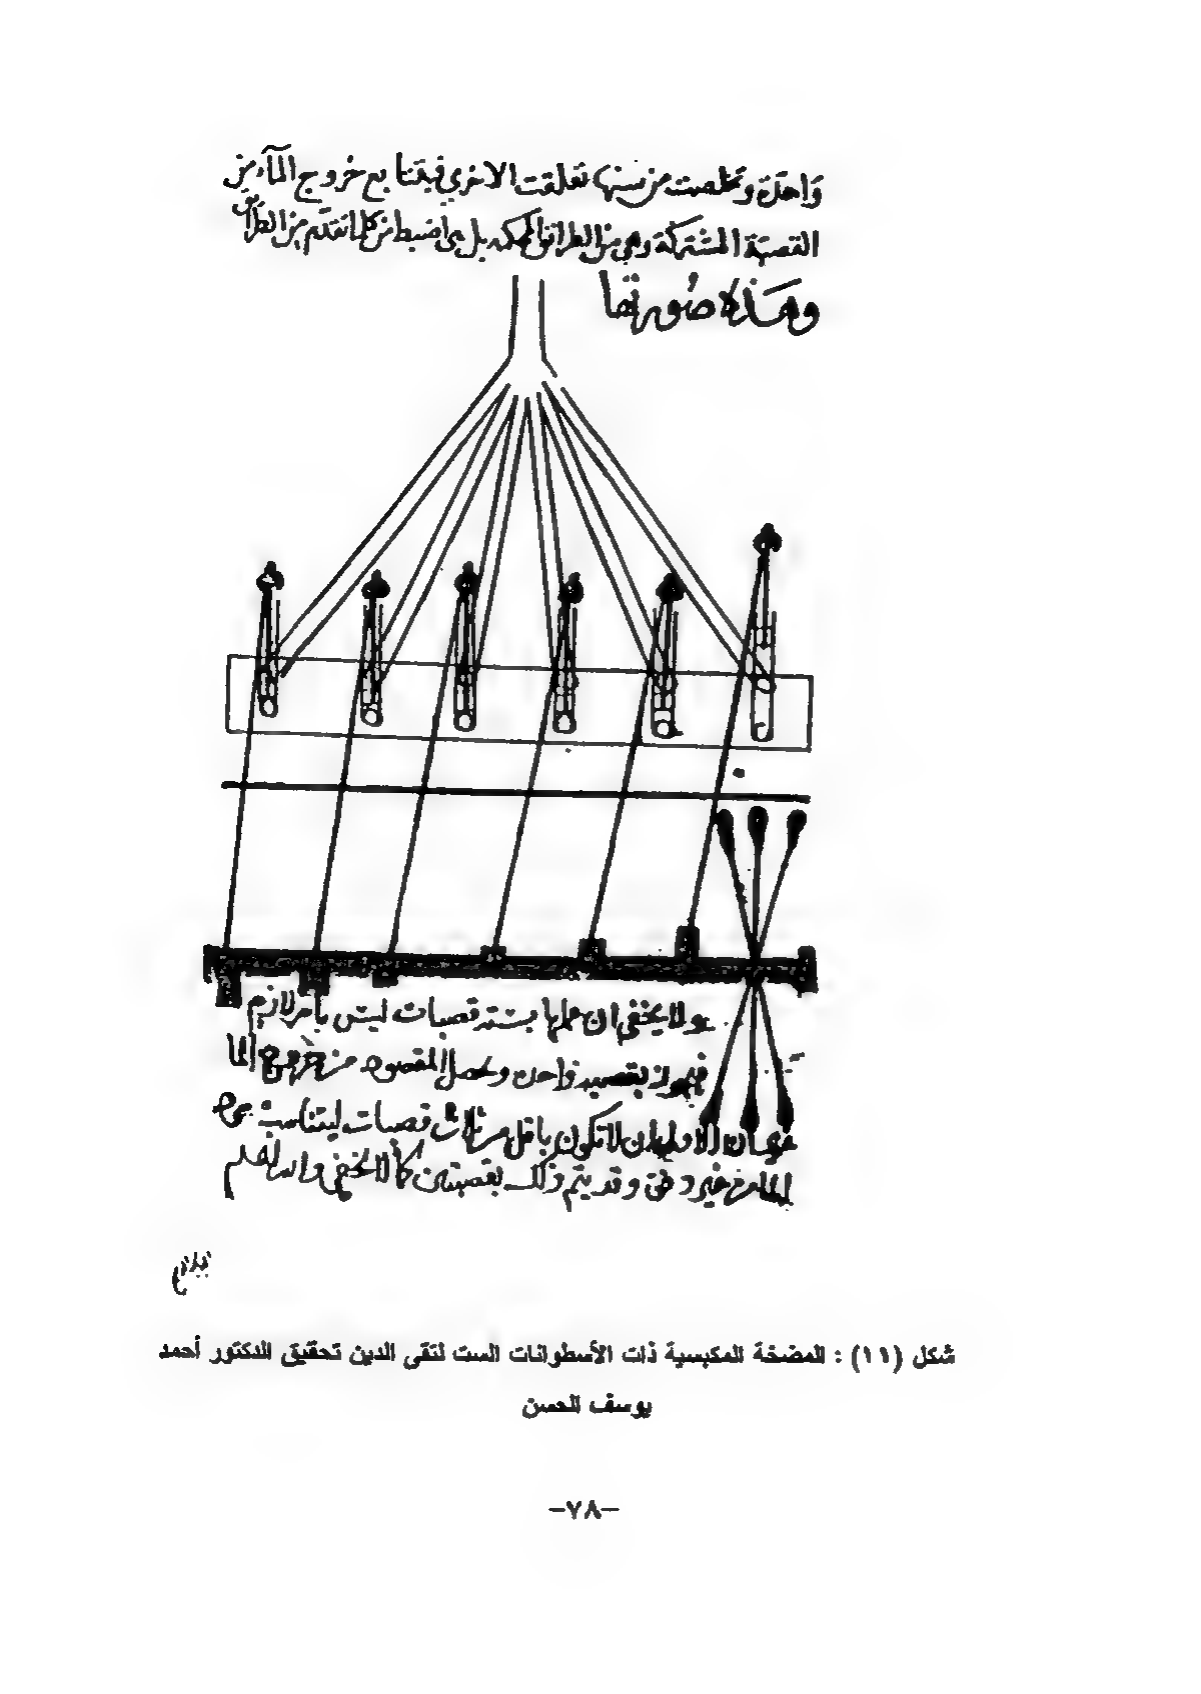 واحدة وتخلصت من سنها تعلقت الاخرى فيتتابع خروج المآء من
القصبة المشتركة وهي من الطرائق المحكمة بل هي اضبط من كلما تقدم من الطرائق
وهذه صورتها
ولا يخفى ان عملها بست قصبات ليس بامر لازم
فيجوز بقصبة واحدة ويحصل المقصود من خروج الما
الاولى ان لا تكون باقل من ثلاث قصبات ليتناسب
الما من غير وقد يتم ذلك بقصبتين كما لا يخفى والله اعلم
شكل (١١) : المضخة المكبسية ذات الأسطوانات الست لتقي الدين تحقيق الدكتور أحمد
يوسف الحسن
-٧٨-